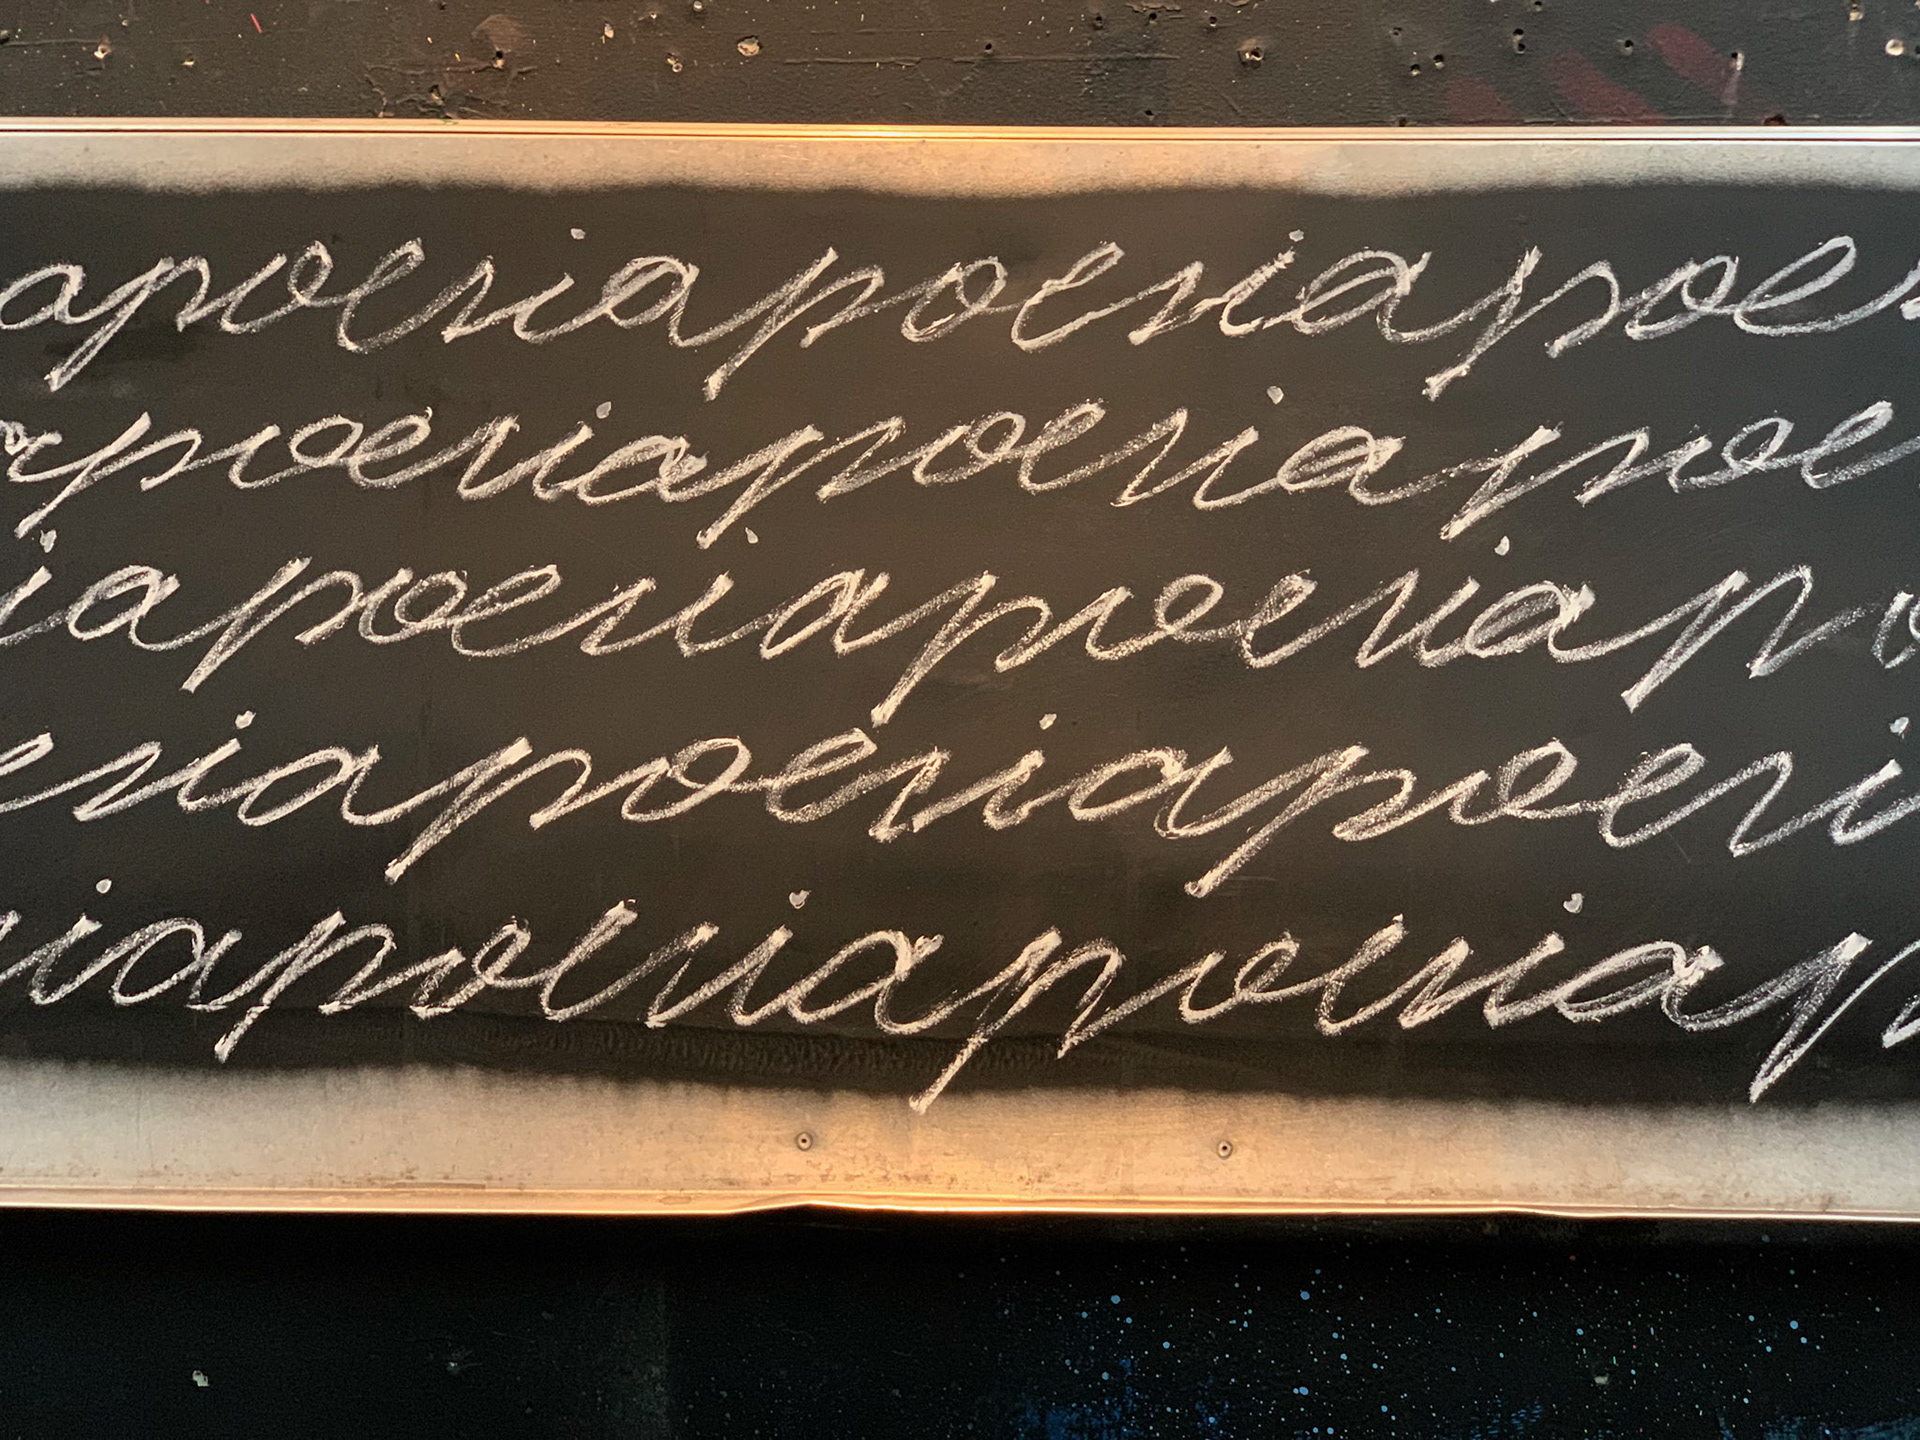 apoesiapoesiapoes
apoesiapoesiapoe
iapoesiapoesiapo
esiapoesiapoesi
siapoesiapoesiap